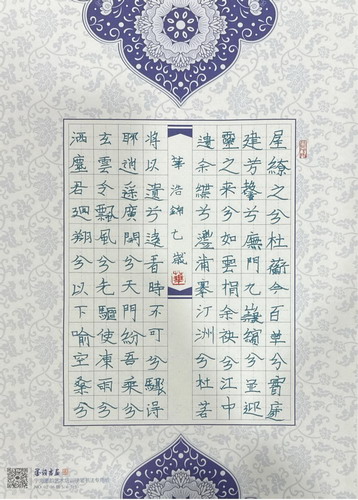 屋繚之兮杜蘅合百草兮實庭
建芳馨兮廡門九嶷繽兮並迎
靈之來兮如雲捐余袂兮江中
遺余褋兮灃浦搴汀洲兮杜若
華浩錦七歲
將以遺兮遠者時不可兮驟得
聊逍遙廣開兮天門紛吾乘兮
玄雲令飄風兮先驅使凍雨兮
洒塵君迴翔兮以下喻空桑兮